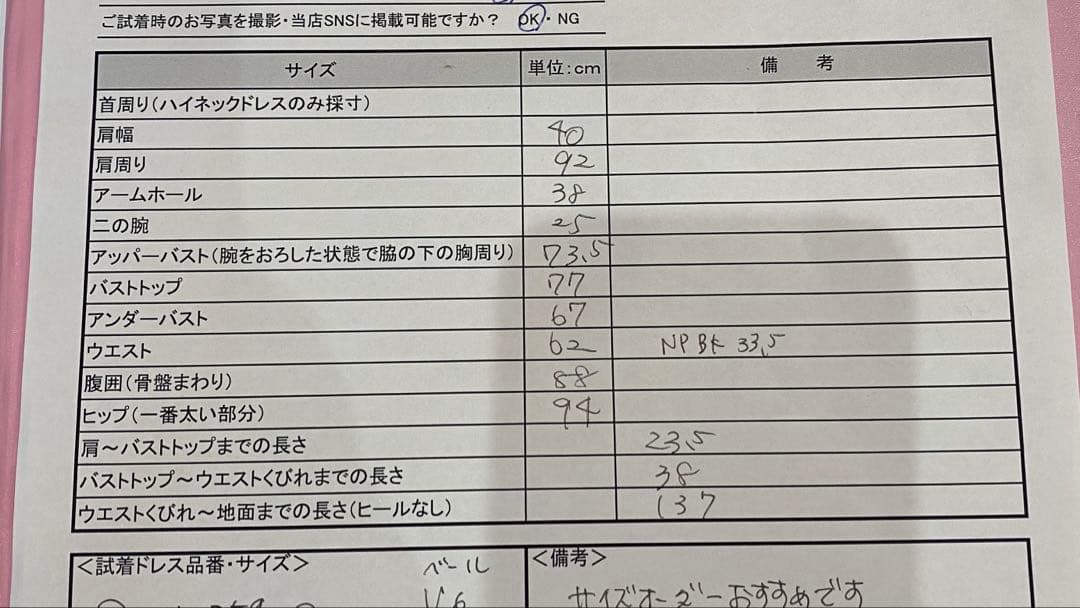 ご試着時のお写真を撮影・当店SNSに掲載可能ですか？ OK・NG
サイズ 単位:cm 備考
首周り(ハイネックドレスのみ採寸)
肩幅 40
肩周り 92
アームホール 38
二の腕 25
アッパーバスト(腕をおろした状態で脇の下の胸周り) 73.5
バストトップ 77
アンダーバスト 67
ウエスト 62 NP BK 33.5
腹囲(骨盤まわり) 88
ヒップ(一番太い部分) 94
肩～バストトップまでの長さ 23.5
バストトップ～ウエストくびれまでの長さ 38
ウエストくびれ～地面までの長さ(ヒールなし) 137
＜試着ドレス品番・サイズ＞ ベール ＜備考＞
サイズオーダーおすすめです